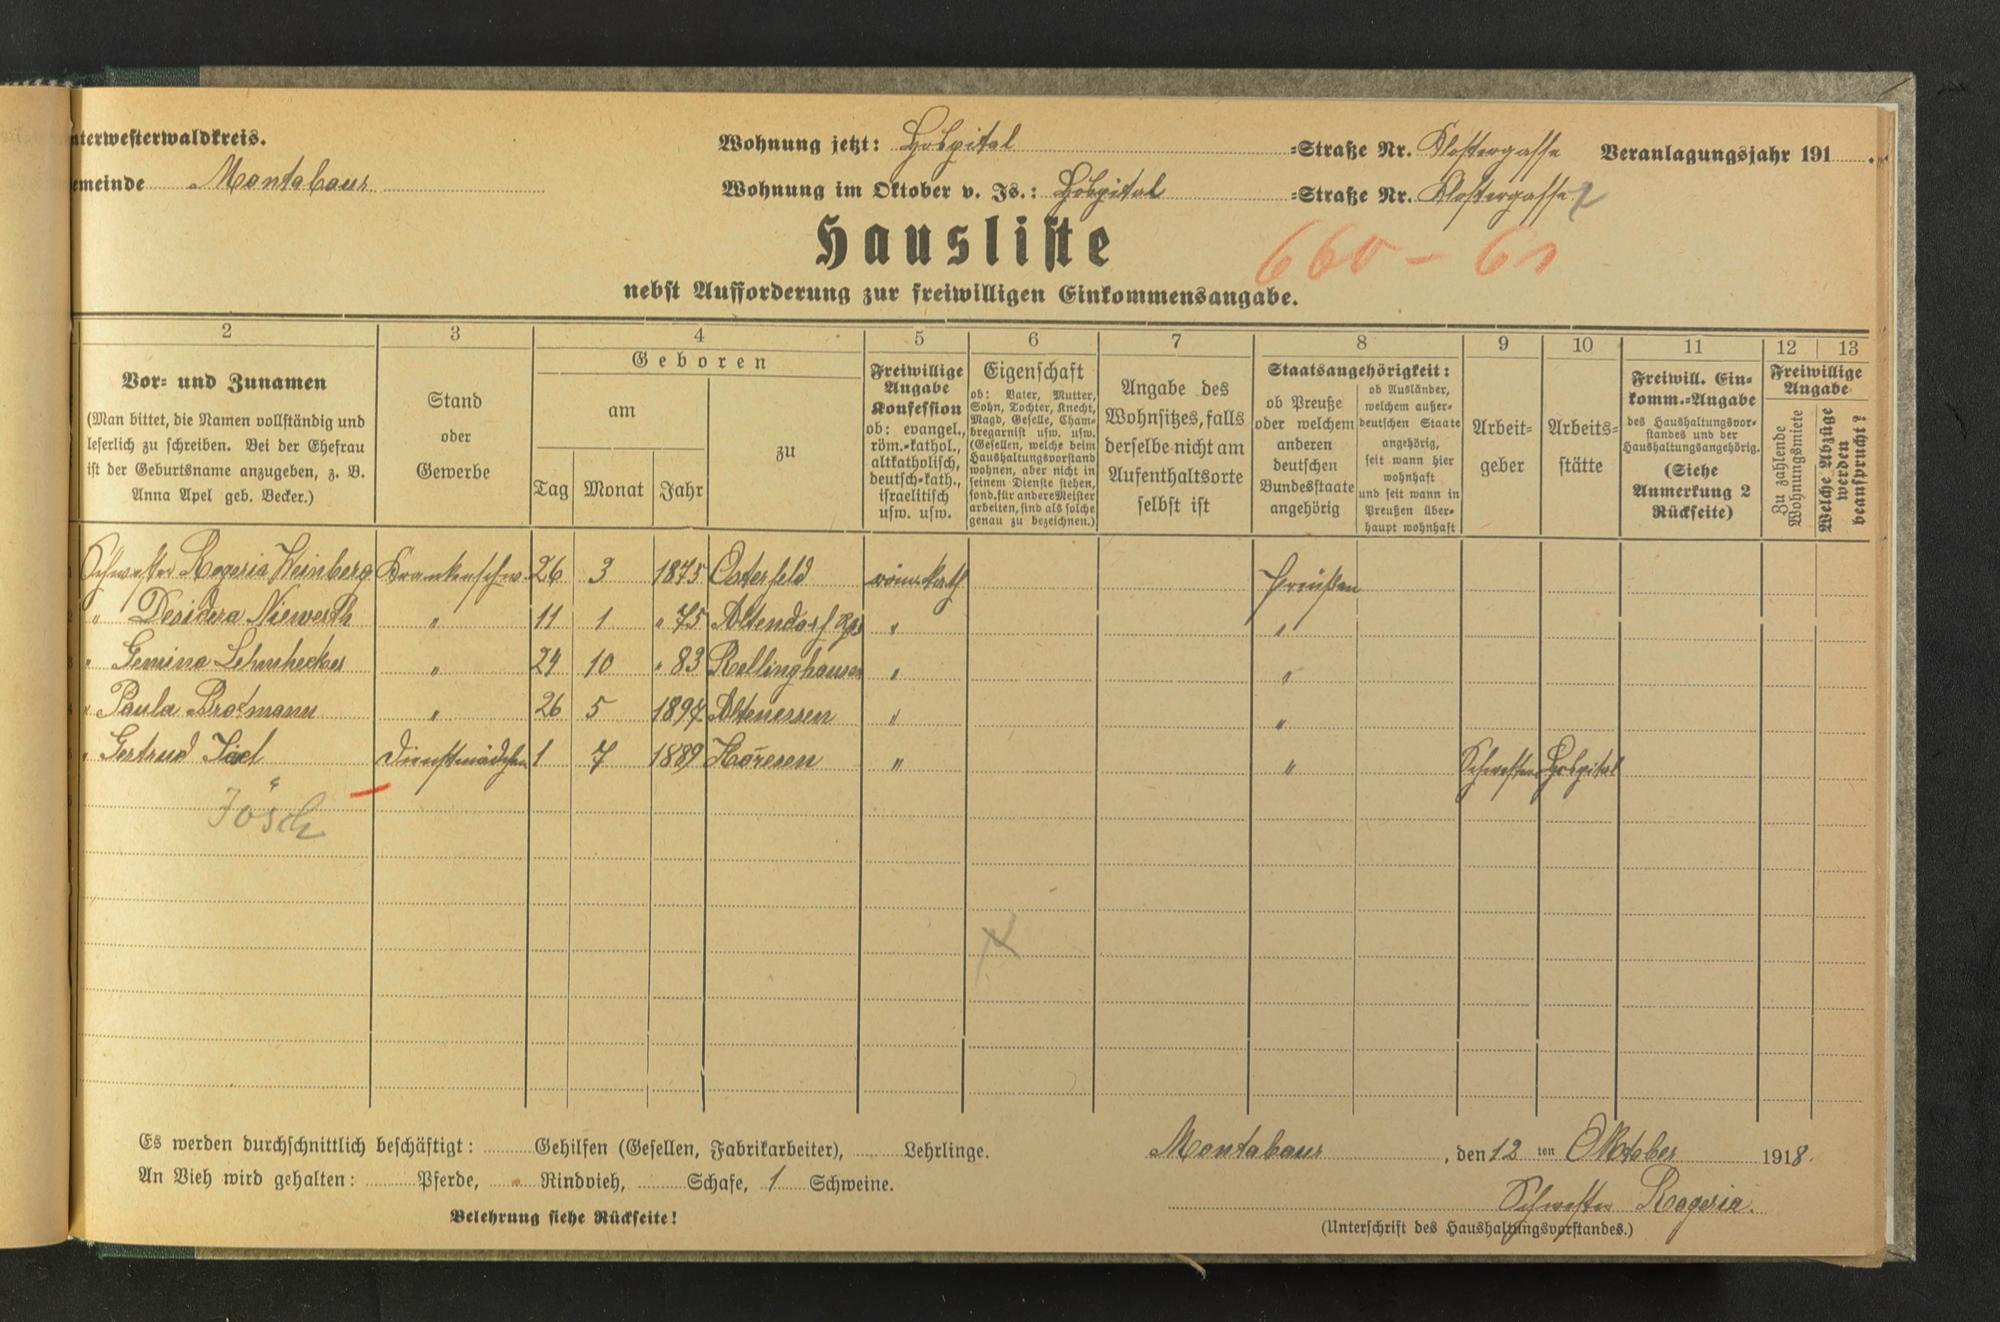 nterwesterwaldkreis.
Wohnung jetzt: Hospital =Straße Nr. Klostergasse Veranlagungsjahr 191 .
emeinde Montabaur
Wohnung im Oktober v. Js.: Hospital =Straße Nr. Klostergasse
Hausliste
660 - 61
nebst Aufforderung zur freiwilligen Einkommensangabe.
2 3 4 5 6 7 8 9 10 11 12 13
Vor= und Zunamen
(Man bittet, die Namen vollständig und
leserlich zu schreiben. Bei der Ehefrau
ist der Geburtsname anzugeben, z. B.
Anna Apel geb. Becker.)
Stand
oder
Gewerbe
Geboren
am
Tag Monat Jahr
zu
Freiwillige
Angabe
Konfession
ob: evangel.,
röm.=kathol.,
altkatholisch,
deutsch=kath.,
israelitisch
usw. usw.
Eigenschaft
ob: Vater, Mutter,
Sohn, Tochter, Knecht,
Magd, Geselle, Cham=
bregarnist usw. usw.
(Gesellen, welche beim
Haushaltungsvorstand
wohnen, aber nicht in
seinem Dienste stehen,
sond. für andere Meister
arbeiten, sind als solche
genau zu bezeichnen.)
Angabe des
Wohnsitzes, falls
derselbe nicht am
Aufenthaltsorte
selbst ist
Staatsangehörigkeit:
ob Preuße
oder welchem
anderen
deutschen
Bundesstaate
angehörig
ob Ausländer,
welchem außer=
deutschen Staate
angehörig,
seit wann hier
wohnhaft
und seit wann in
Preußen über=
haupt wohnhaft
Arbeit=
geber
Arbeits=
stätte
Freiwill. Ein=
komm.=Angabe
des Haushaltungsvor=
standes und der
Haushaltungsangehörig.
(Siehe
Anmerkung 2
Rückseite)
Freiwillige
Angabe
Zu zahlende
Wohnungsmiete
Welche Abzüge
werden
beansprucht?
Schwester Rogeria Weinberg Krankenschw. 26 3 1875 Osterfeld röm. kath Preußen
" Desidera Niewerth " 11 1 " 75 Altendorf " "
" Gemina Lehnhecker " 24 10 " 83 Rellinghausen " "
" Paula Brotmann " 26 5 1894 Altenessen " "
" Gertrud Jöel Dienstmädchen 1 7 1889 Horesen " " Schwestern Hospital
Jösch
Es werden durchschnittlich beschäftigt: Gehilfen (Gesellen, Fabrikarbeiter), Lehrlinge.
Montabaur , den 12 ten Oktober 1918.
An Vieh wird gehalten: Pferde, Rindvieh, Schafe, 1 Schweine.
Schwester Rogeria.
Belehrung siehe Rückseite!
(Unterschrift des Haushaltungsvorstandes.)